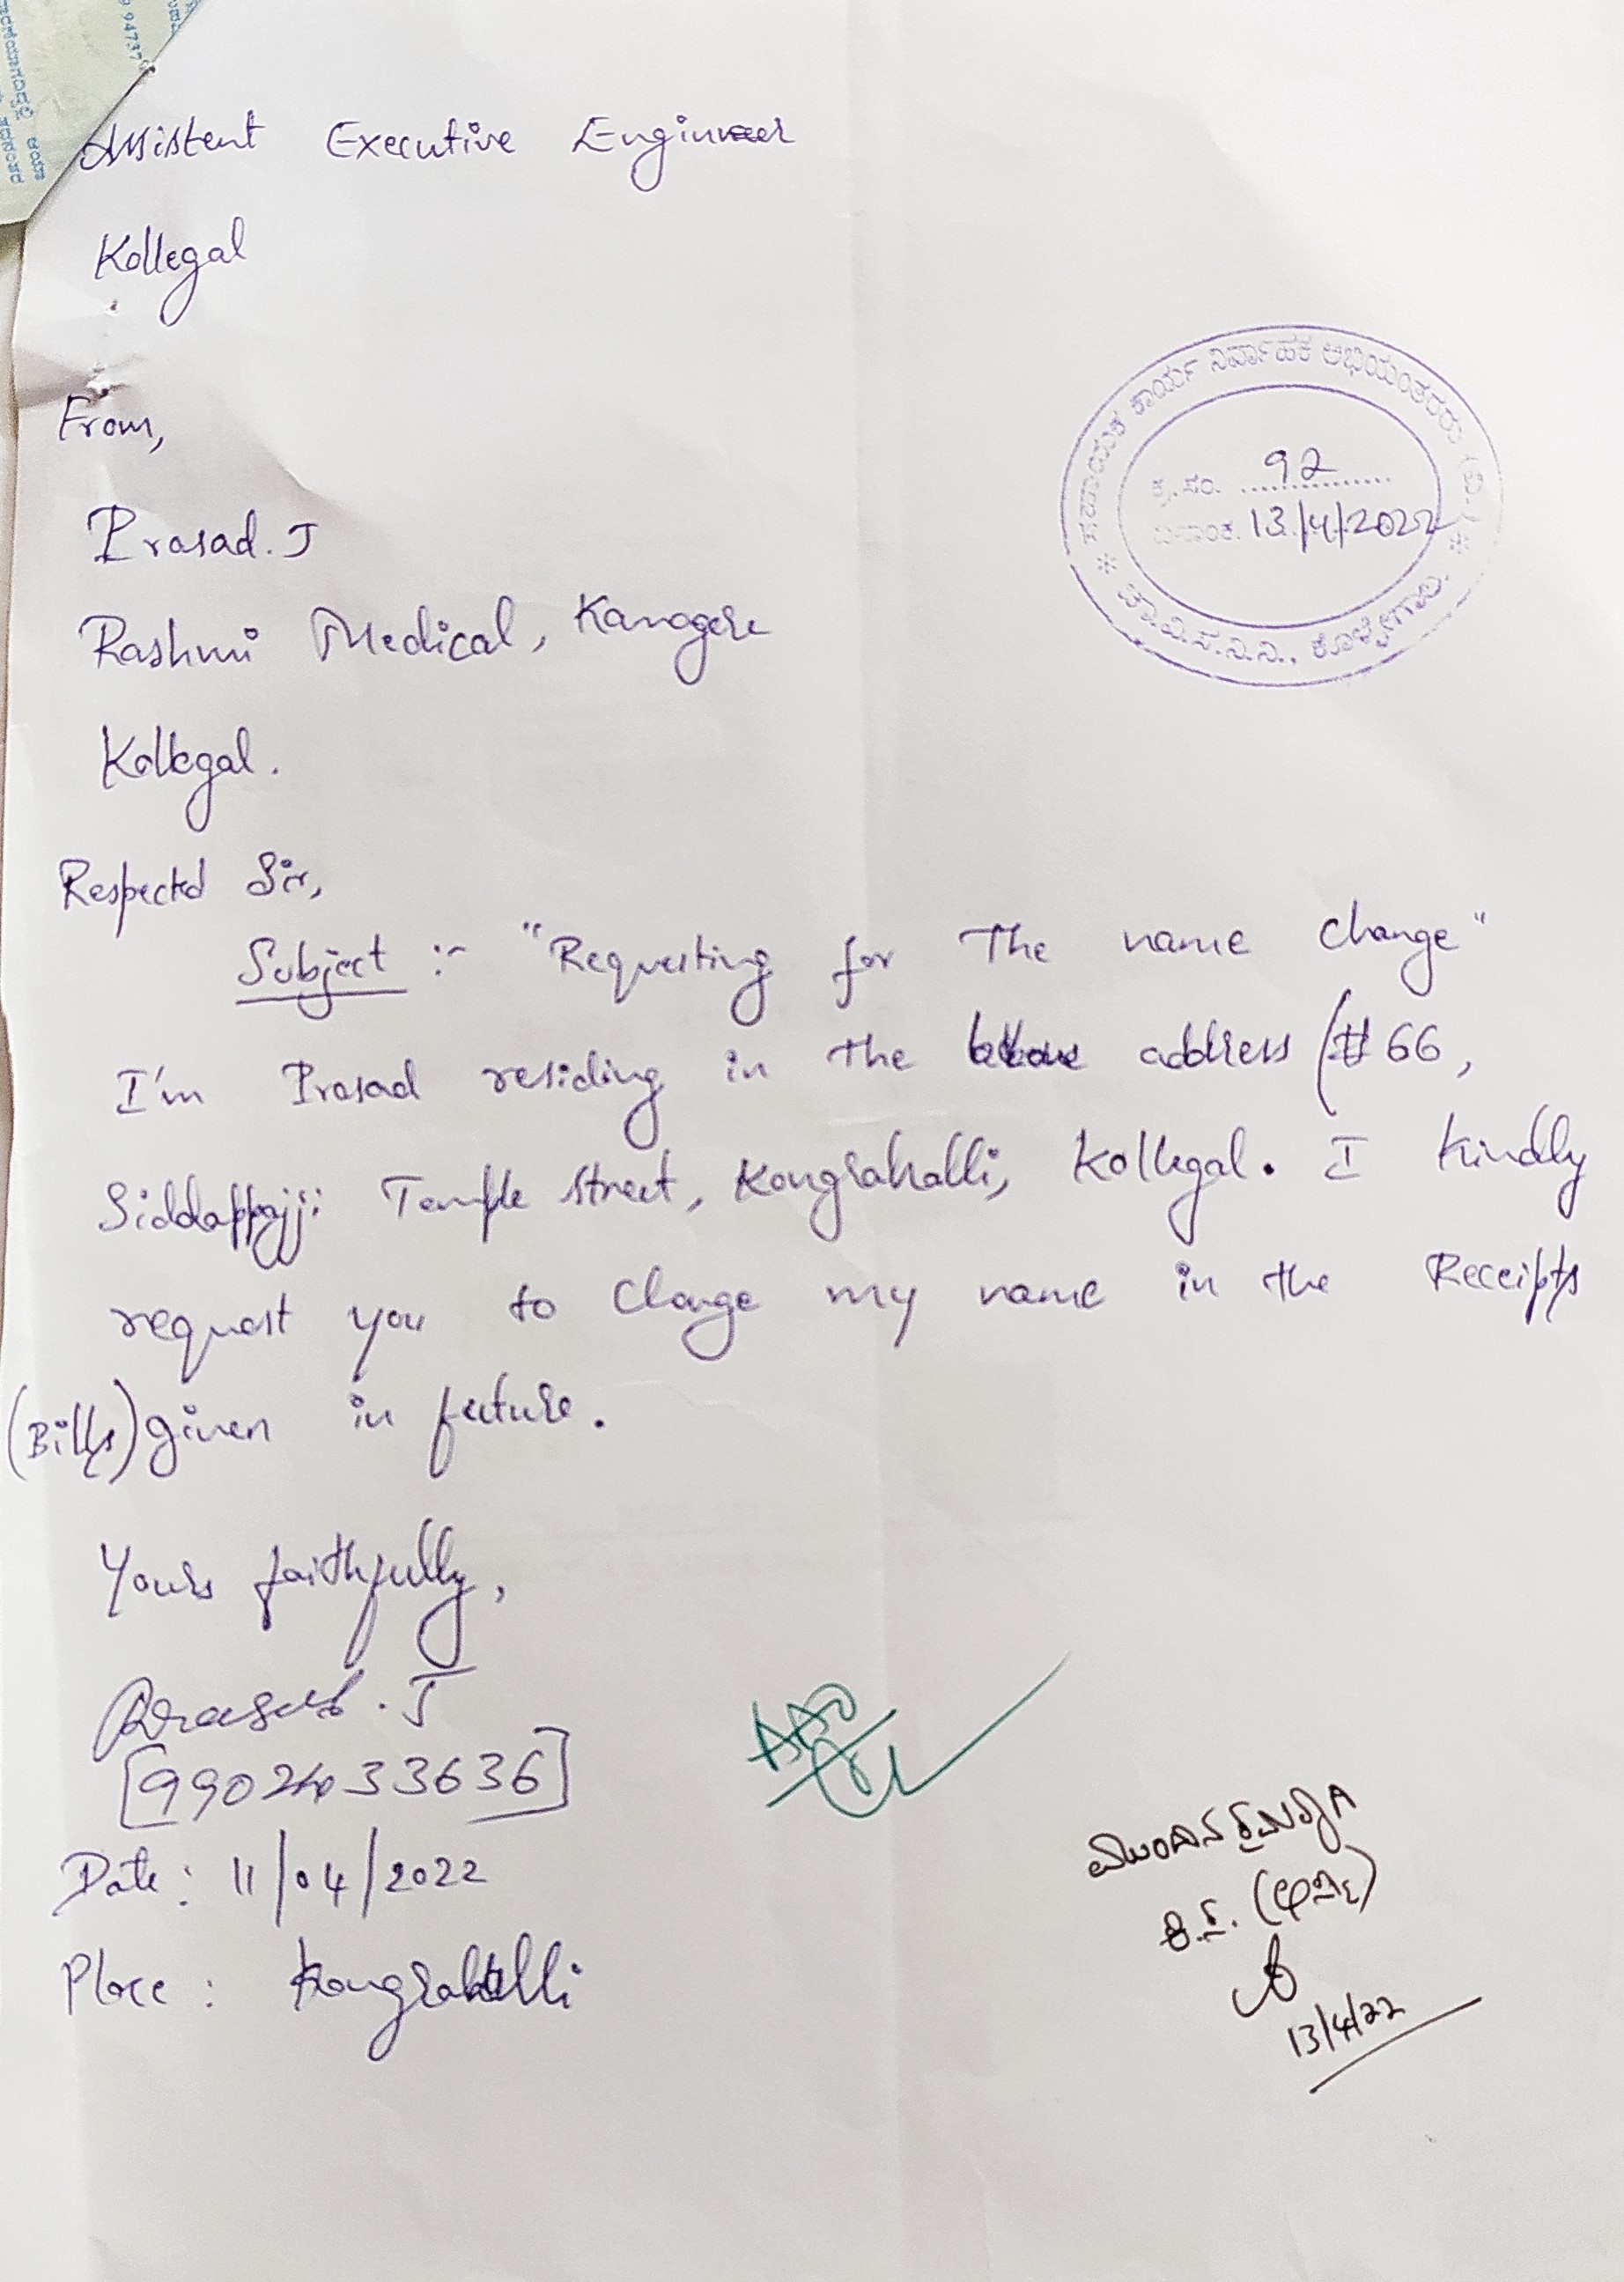 Assistent Executive Engineer
Kollegal
From,
Prasad. J
Rashmi Medical, Kamagere
Kollegal.
Respected Sir,
Subject :- "Requesting for The name change"
I'm Prasad residing in the address (# 66,
Siddappajji Temple street, Kongrahalli, Kollegal. I kindly
request you to change my name in the Receipts
(Bills) given in future.
Yours faithfully,
Prasad. J
[9902433636]
Date: 11/04/2022
Place: Kongrahalli
ಸಹಾಯಕ ಕಾರ್ಯ ನಿರ್ವಾಹಕ ಅಭಿಯಂತರರು (ವಿ.)
ಕ್ರ.ಸಂ. 92
ದಿನಾಂಕ. 13/4/2022
ಚಾ.ವಿ.ಸ.ನಿ.ನಿ., ಕೊಳ್ಳೇಗಾಲ.
13/4/22